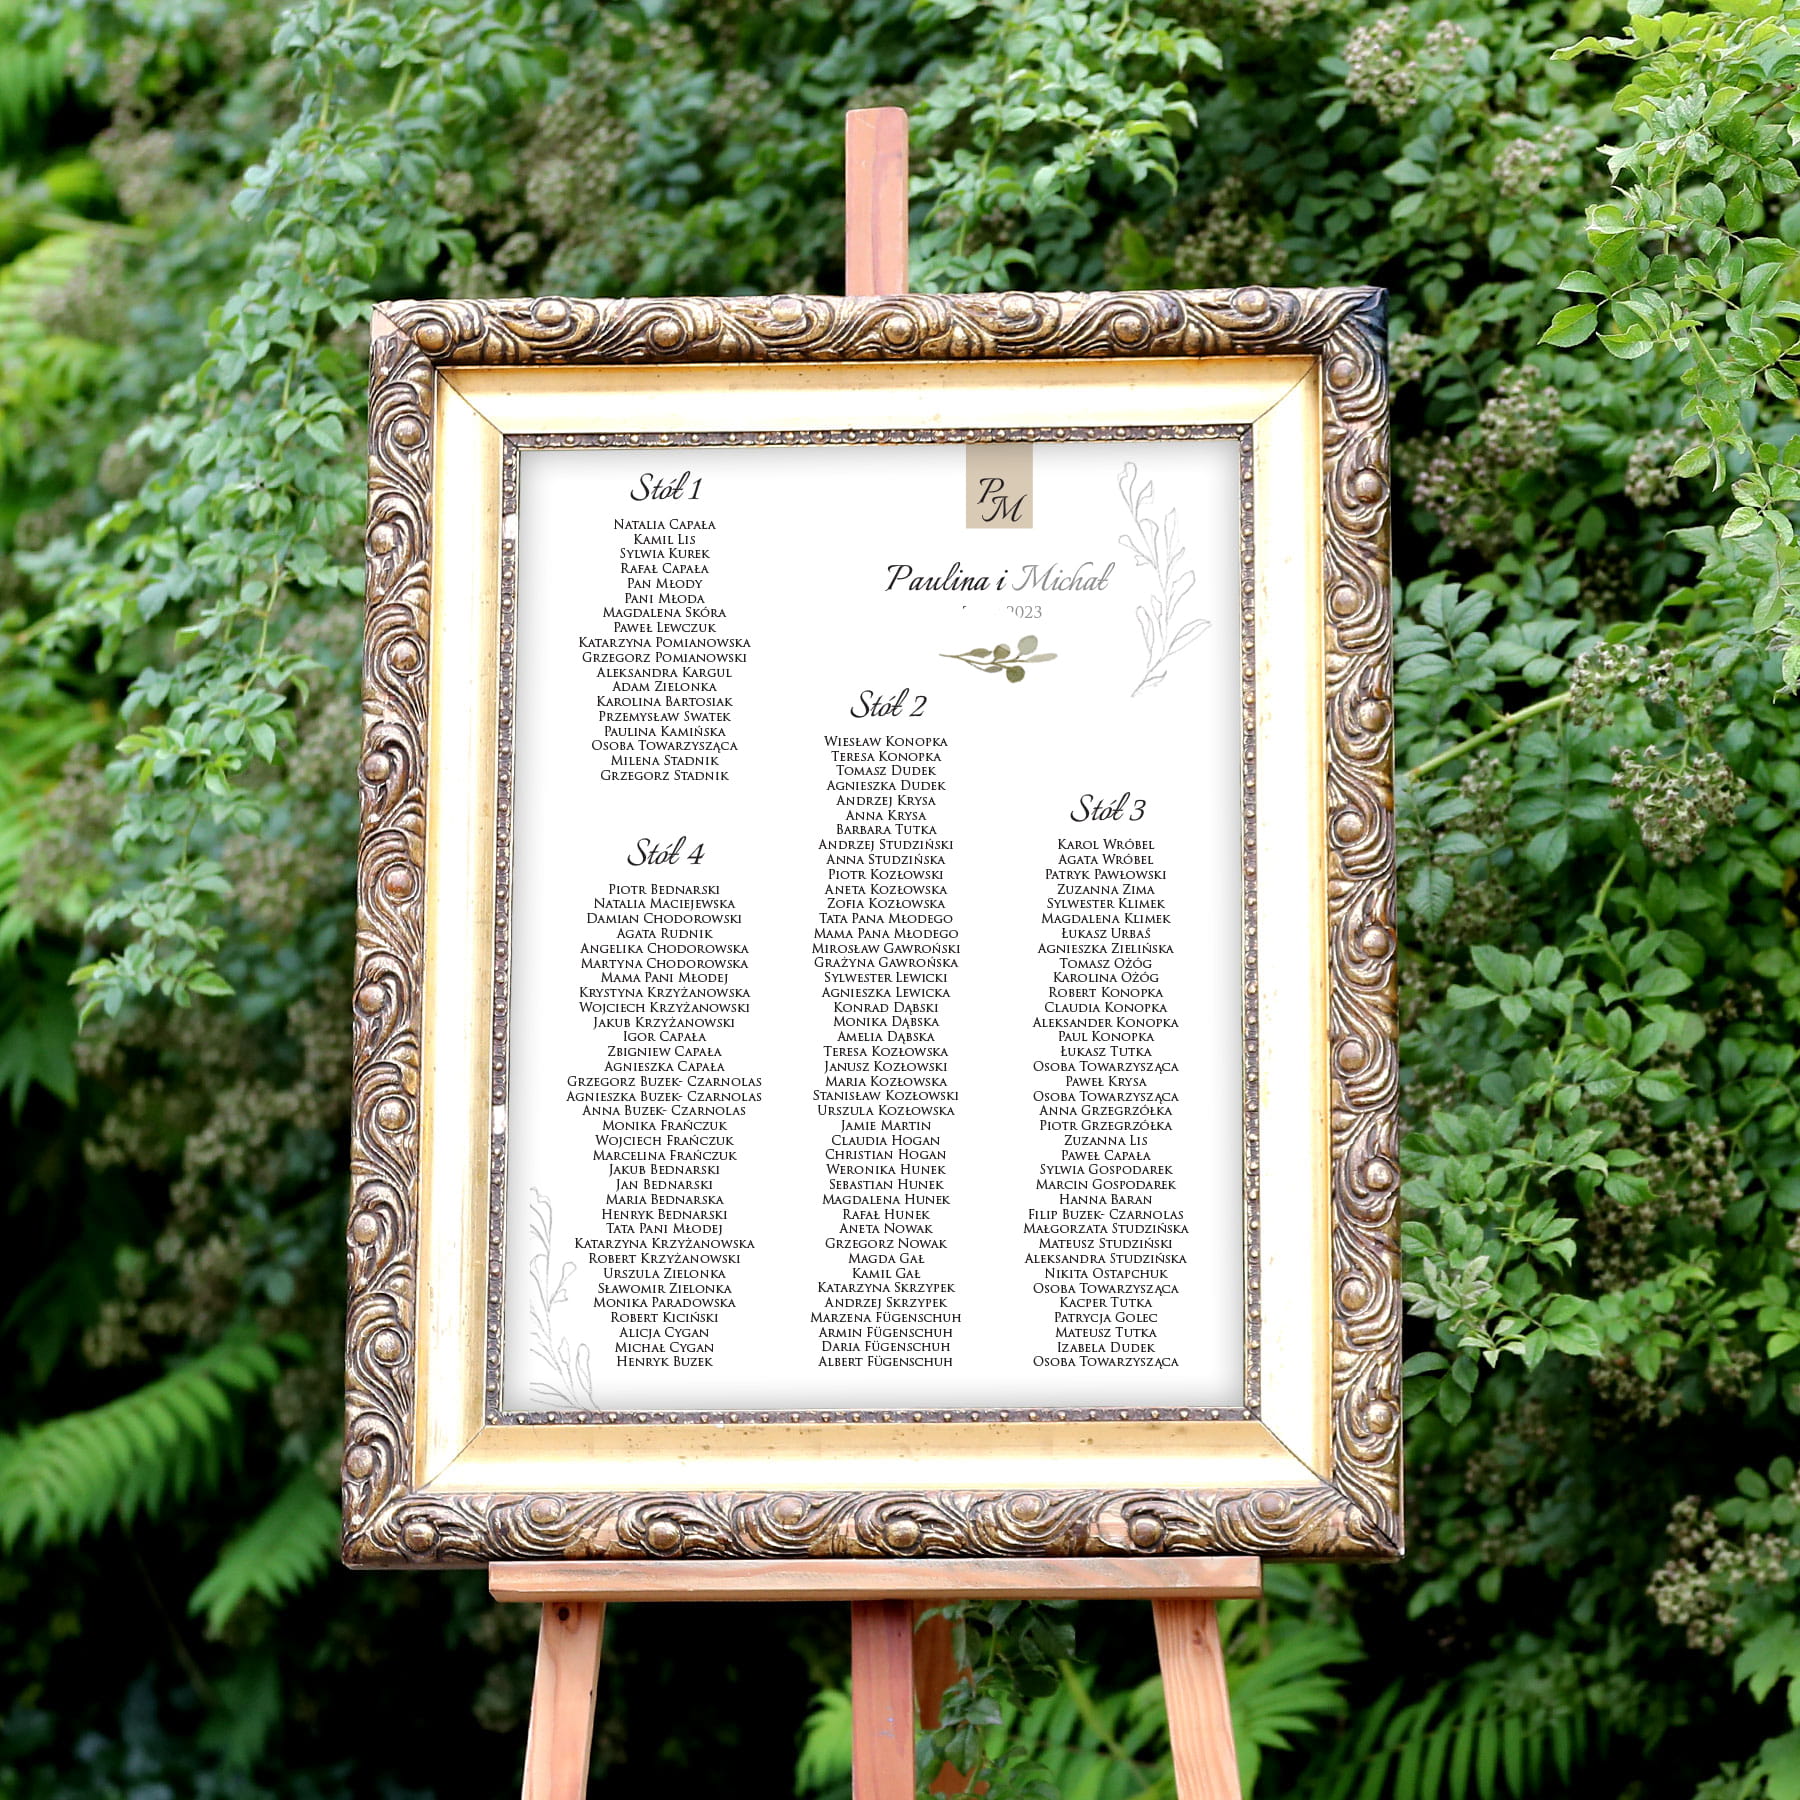 Stół 1
Natalia Capała
Kamil Lis
Sylwia Kurek
Rafał Capała
Pan Młody
Pani Młoda
Magdalena Skóra
Paweł Lewczuk
Katarzyna Pomianowska
Grzegorz Pomianowski
Aleksandra Kargul
Adam Zielonka
Karolina Bartosiak
Przemysław Swatek
Paulina Kamińska
Osoba Towarzysząca
Milena Stadnik
Grzegorz Stadnik
PM
Paulina i Michał
Stół 2
Wiesław Konopka
Teresa Konopka
Tomasz Dudek
Agnieszka Dudek
Andrzej Krysa
Anna Krysa
Barbara Tutka
Andrzej Studziński
Anna Studzińska
Piotr Kozłowski
Aneta Kozłowska
Zofia Kozłowska
Tata Pana Młodego
Mama Pana Młodego
Mirosław Gawroński
Grażyna Gawrońska
Sylwester Lewicki
Agnieszka Lewicka
Konrad Dąbski
Monika Dąbska
Amelia Dąbska
Teresa Kozłowska
Janusz Kozłowski
Maria Kozłowska
Stanisław Kozłowski
Urszula Kozłowska
Jamie Martin
Claudia Hogan
Christian Hogan
Weronika Hunek
Sebastian Hunek
Magdalena Hunek
Rafał Hunek
Aneta Nowak
Grzegorz Nowak
Magda Gał
Kamil Gał
Katarzyna Skrzypek
Andrzej Skrzypek
Marzena Fügenschuh
Armin Fügenschuh
Daria Fügenschuh
Albert Fügenschuh
Stół 3
Karol Wróbel
Agata Wróbel
Patryk Pawłowski
Zuzanna Zima
Sylwester Klimek
Magdalena Klimek
Łukasz Urbaś
Agnieszka Zielińska
Tomasz Ożóg
Karolina Ożóg
Robert Konopka
Claudia Konopka
Aleksander Konopka
Paul Konopka
Łukasz Tutka
Osoba Towarzysząca
Paweł Krysa
Osoba Towarzysząca
Anna Grzegrzółka
Piotr Grzegrzółka
Zuzanna Lis
Paweł Capała
Sylwia Gospodarek
Marcin Gospodarek
Hanna Baran
Filip Buzek- Czarnolas
Małgorzata Studzińska
Mateusz Studziński
Aleksandra Studzińska
Nikita Ostapchuk
Osoba Towarzysząca
Kacper Tutka
Patrycja Golec
Mateusz Tutka
Izabela Dudek
Osoba Towarzysząca
Stół 4
Piotr Bednarski
Natalia Maciejewska
Damian Chodorowski
Agata Rudnik
Angelika Chodorowska
Martyna Chodorowska
Mama Pani Młodej
Krystyna Krzyżanowska
Wojciech Krzyżanowski
Jakub Krzyżanowski
Igor Capała
Zbigniew Capała
Agnieszka Capała
Grzegorz Buzek- Czarnolas
Agnieszka Buzek- Czarnolas
Anna Buzek- Czarnolas
Monika Frańczuk
Wojciech Frańczuk
Marcelina Frańczuk
Jakub Bednarski
Jan Bednarski
Maria Bednarska
Henryk Bednarski
Tata Pani Młodej
Katarzyna Krzyżanowska
Robert Krzyżanowski
Urszula Zielonka
Sławomir Zielonka
Monika Paradowska
Robert Kiciński
Alicja Cygan
Michał Cygan
Henryk Buzek